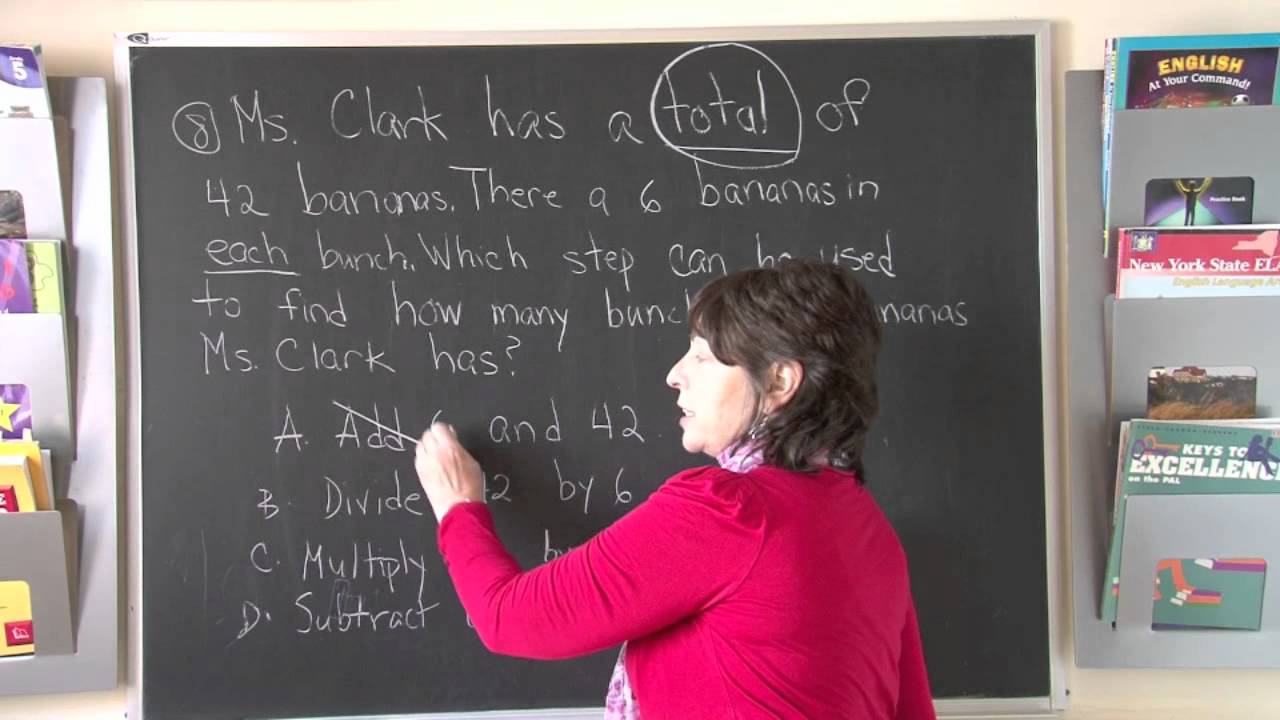 ⑧ Ms. Clark has a total of
42 bananas. There a 6 bananas in
each bunch. Which step can be used
to find how many
Ms. Clark has?
A. Add 6 and 42.
B. Divide 42 by 6
C. Multiply by
D. Subtract
5
ENGLISH
At Your Command!
Practice Book
New York State ELA
English Language Ar
KEYS TO
EXCELLENCE
on the PAL